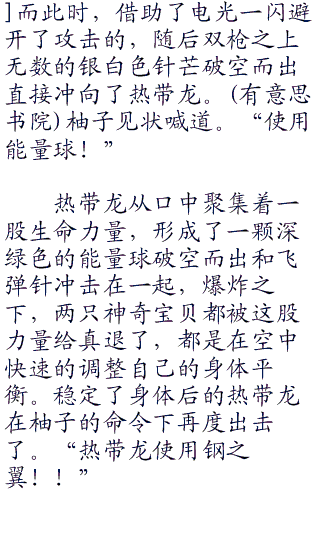 ]而此时，借助了电光一闪避
开了攻击的，随后双枪之上
无数的银白色针芒破空而出
直接冲向了热带龙。(有意思
书院)柚子见状喊道。“使用
能量球！”
热带龙从口中聚集着一
股生命力量，形成了一颗深
绿色的能量球破空而出和飞
弹针冲击在一起，爆炸之
下，两只神奇宝贝都被这股
力量给真退了，都是在空中
快速的调整自己的身体平
衡。稳定了身体后的热带龙
在柚子的命令下再度出击
了。“热带龙使用钢之
翼！！”